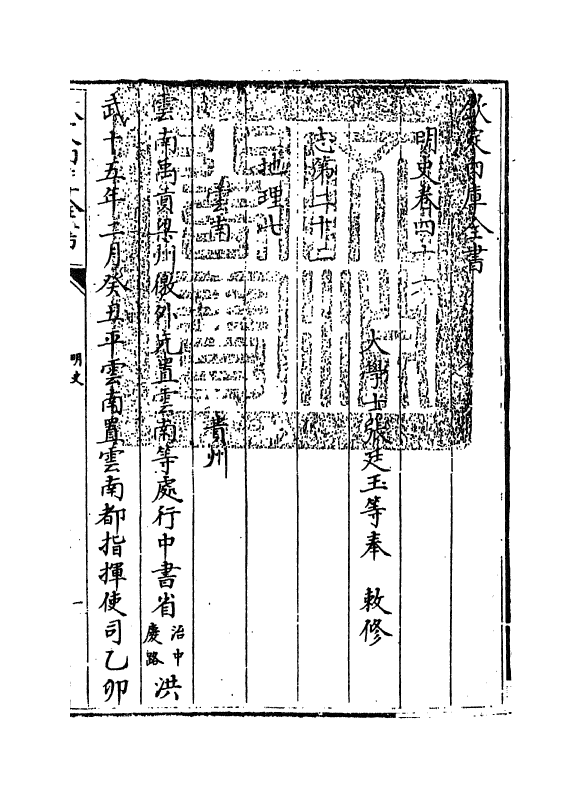 欽定四庫全書
明史卷四十六
大學士張廷玉等奉 敕修
志第二十二
地理七
雲南 貴州
雲南禹貢梁州徼外元置雲南等處行中書省治中慶路洪
武十五年二月癸丑平雲南置雲南都指揮使司乙卯
明史
一